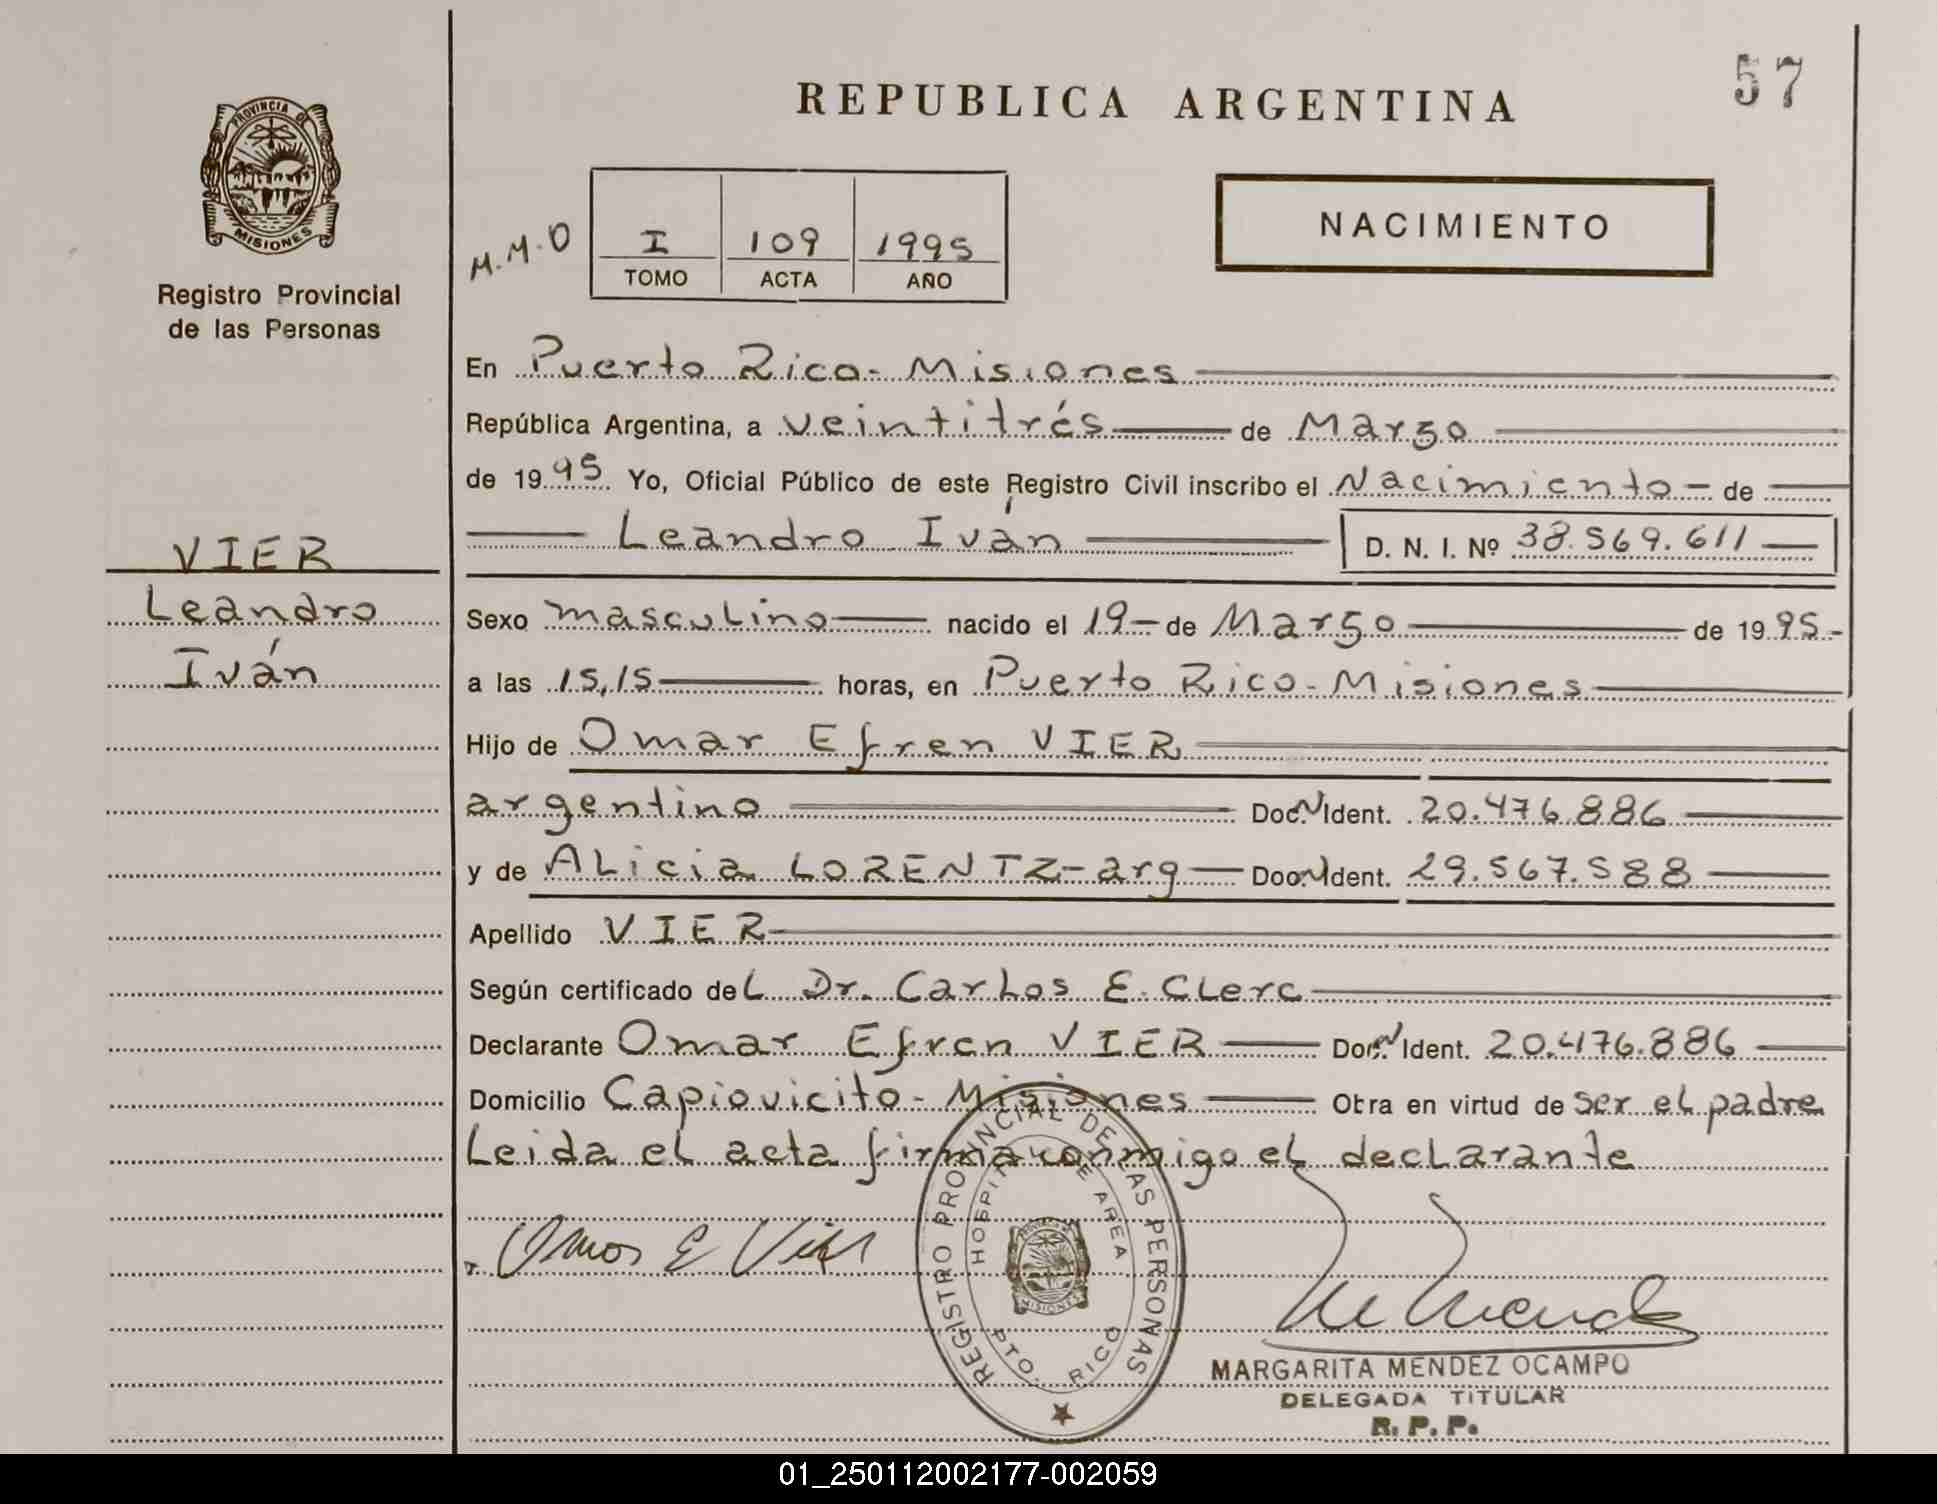 57
REPUBLICA ARGENTINA
PROVINCIA DE
MISIONES
Registro Provincial
de las Personas
NACIMIENTO
M.M.O
I 109 1995
TOMO ACTA AÑO
En Puerto Rico - Misiones
República Argentina, a veintitrés de Marzo
de 1995 Yo, Oficial Público de este Registro Civil inscribo el Nacimiento - de
Leandro Iván D. N. I. Nº 38.569.611
VIER
Leandro
Iván
Sexo masculino nacido el 19 - de Marzo de 1995 -
a las 15,15 horas, en Puerto Rico - Misiones
Hijo de Omar Efren VIER
argentino Doc. N Ident. 20.476.886
y de ALicia LORENTZ - arg Doc. N Ident. 29.567.588
Apellido VIER
Según certificado deL Dr. Carlos E. CLerc
Declarante Omar Efren VIER Doc. N Ident. 20.476.886
Domicilio Capiovicito - Misiones Obra en virtud de ser el padre
Leida el acta firma conmigo el declarante
Omar E Vier
REGISTRO PROVINCIAL DE LAS PERSONAS
HOSPITAL DE AREA
MISIONES
PTO. RICO
MARGARITA MENDEZ OCAMPO
DELEGADA TITULAR
R. P. P.
01_250112002177-002059